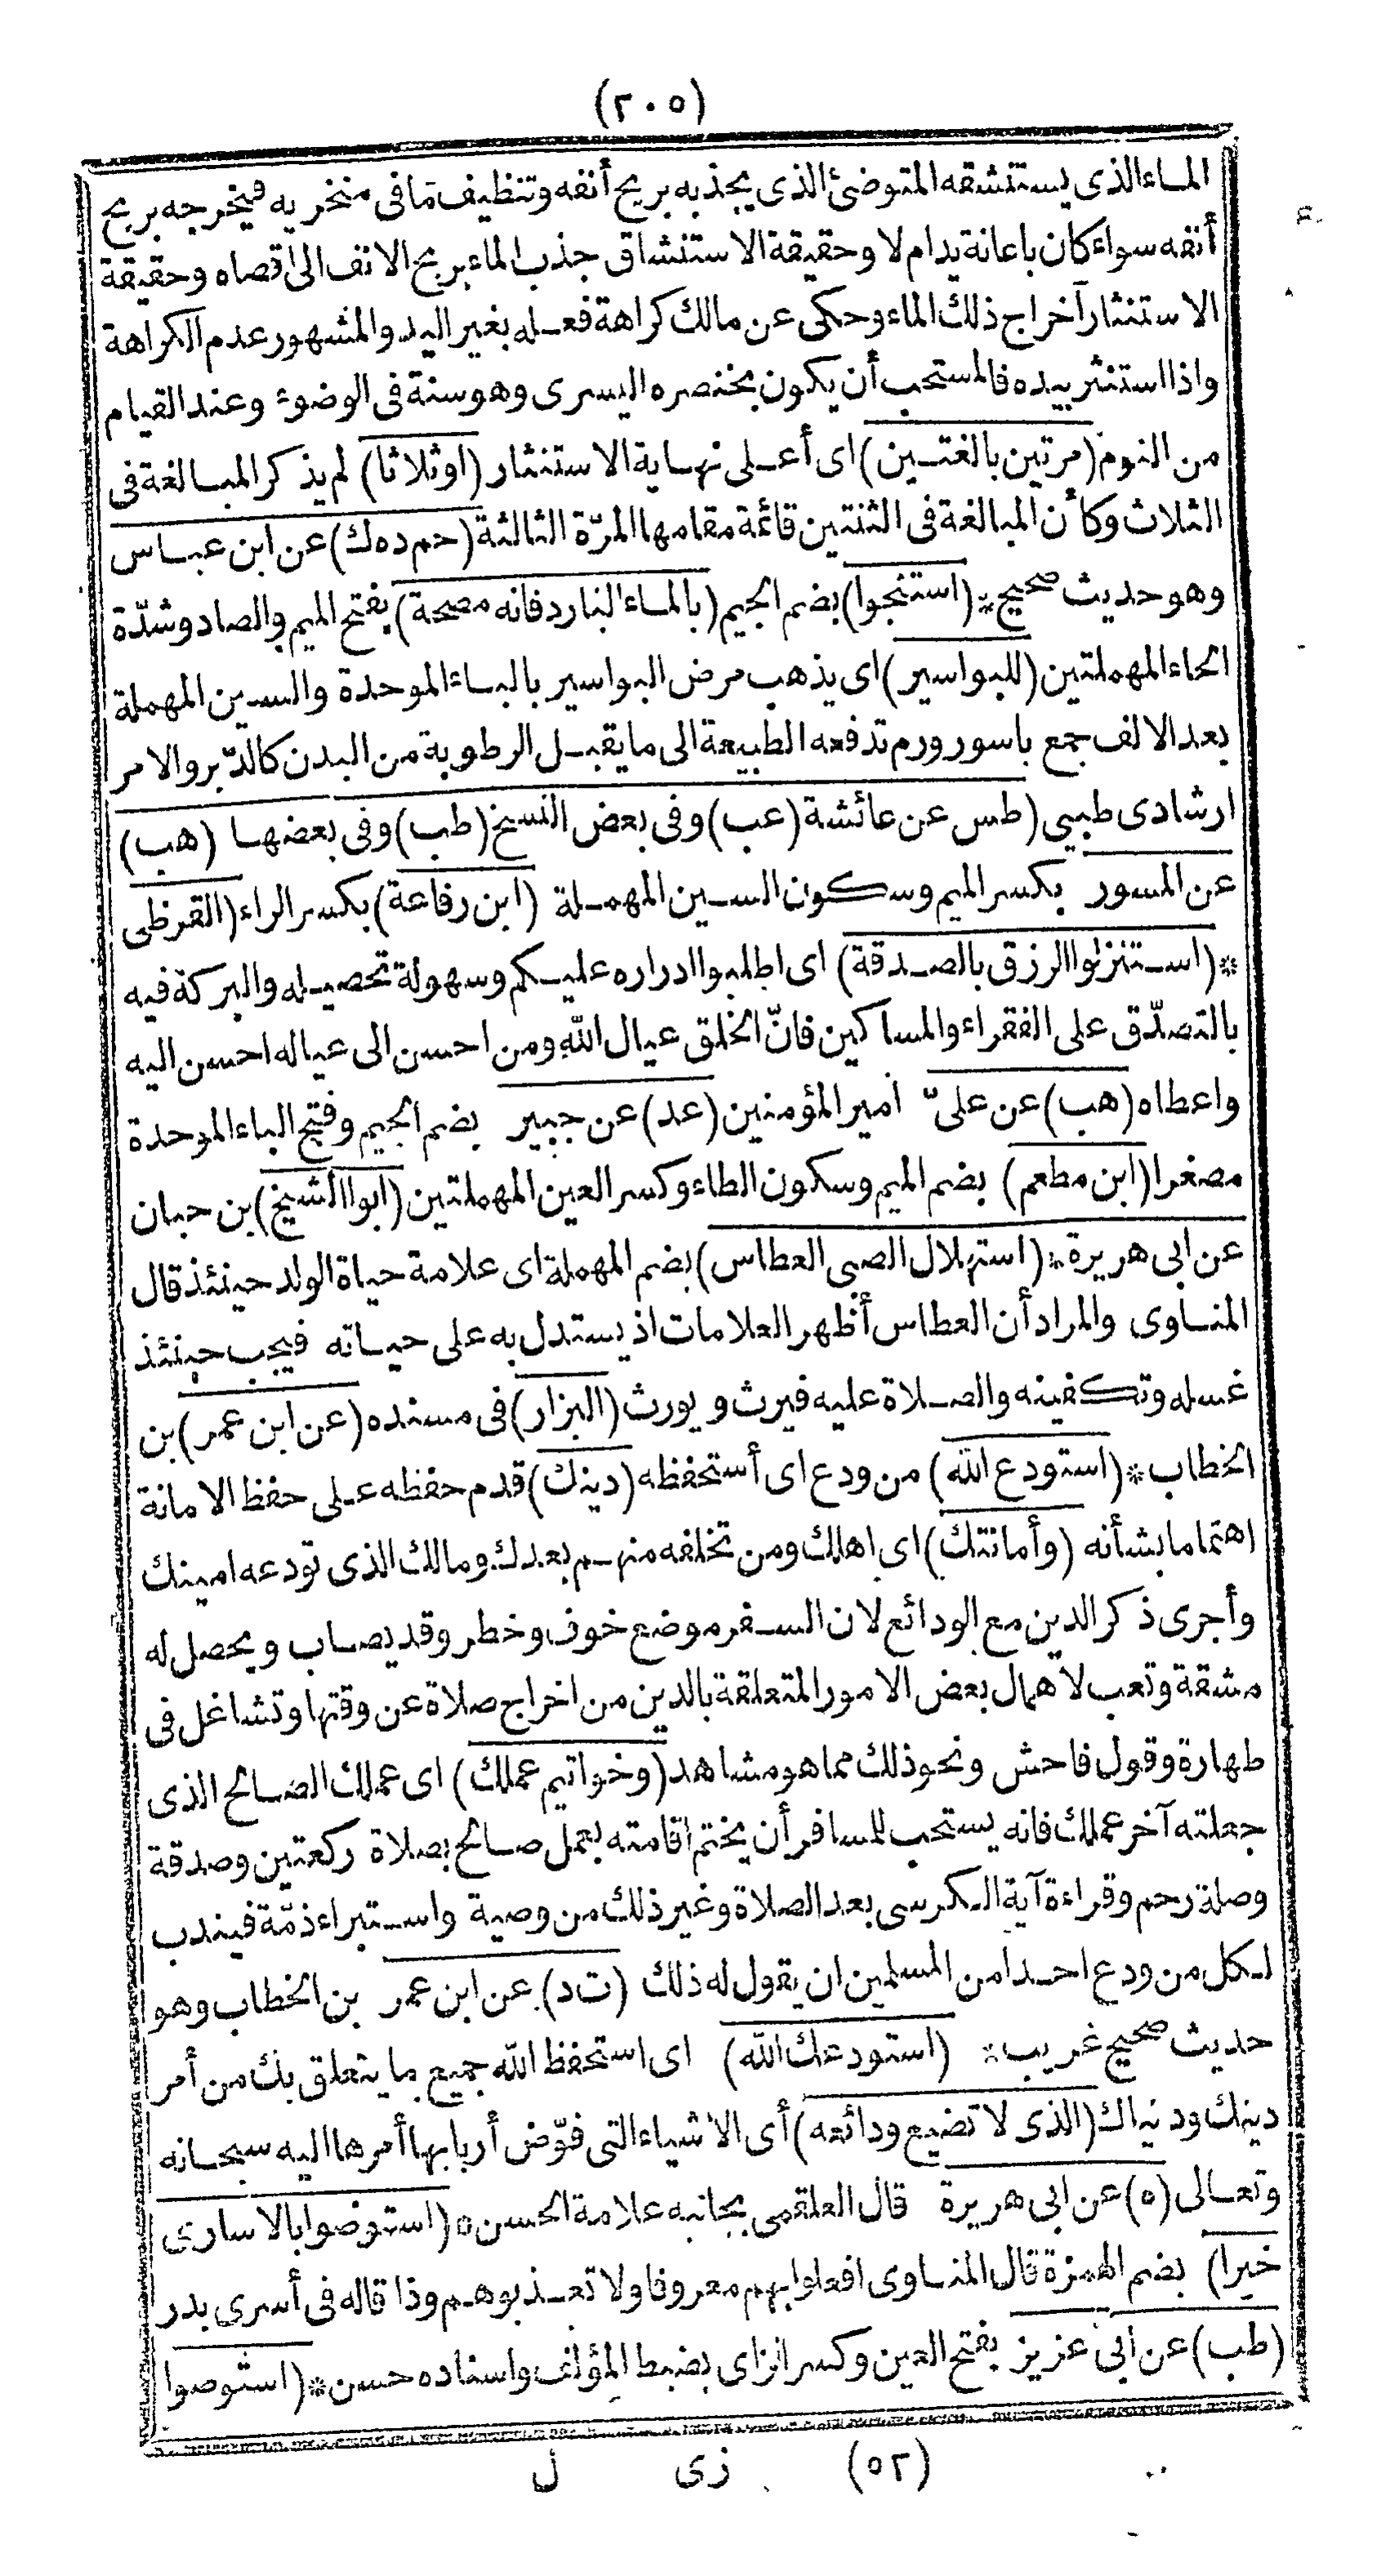 (٢٠٥)
الماء الذى يستنشقه المتوضئ الذى يجذبه بريح أنفه وتنظيف ما فى منخريه فيخرجه بريح
أنفه سواء كان باعانة يد ام لا وحقيقة الاستنشاق جذب الماء بريح الانف الى اقصاه وحقيقة
الاستنثار اخراج ذلك الماء وحكى عن مالك كراهة فعله بغير اليد والمشهور عدم الكراهة
واذا استنثر بيده فالمستحب أن يكون بخنصره اليسرى وهو سنة فى الوضوء وعند القيام
من النوم (مرتين بالغتين) اى أعلى نهاية الاستنثار (اوثلاثا) لم يذكر المبالغة فى
الثلاث وكأن المبالغة فى الثنتين قائمة مقامها المرّة الثالثة (حم د ه ك) عن ابن عباس
وهو حديث صحيح * (استنجوا) بضم الجيم (بالماء البارد فانه مصحة) بفتح الميم والصاد وشدّة
الحاء المهملتين (للبواسير) اى يذهب مرض البواسير بالباء الموحدة والسين المهملة
بعد الالف جمع باسور ورم تدفعه الطبيعة الى ما يقبل الرطوبة من البدن كالدّبر والامر
ارشادى طبيى (طس عن عائشة (عب) وفى بعض النسخ (طب) وفى بعضها (هب)
عن المسور بكسر الميم وسكون السين المهملة (ابن رفاعة) بكسر الراء (القرظى
* (استنزلوا الرزق بالصدقة) اى اطلبوا ادراره عليكم وسهولة تحصيله والبركة فيه
بالتصدّق على الفقراء والمساكين فانّ الخلق عيال الله ومن احسن الى عياله احسن اليه
واعطاه (هب) عن علىّ امير المؤمنين (عد) عن جبير بضم الجيم وفتح الباء الموحدة
مصغرا (ابن مطعم) بضم الميم وسكون الطاء وكسر العين المهملتين (ابوا الشيخ) بن حبان
عن ابى هريرة * (استهلال الصبى العطاس) بضم المهملة اى علامة حياة الولد حينئذ قال
المناوى والمراد أن العطاس أظهر العلامات اذ يستدل به على حياته فيجب حينئذ
غسله وتكفينه والصلاة عليه فيرث ويورث (البزار) فى مسنده (عن ابن عمر) بن
الخطاب * (استودع الله) من ودع اى أستحفظه (دينك) قدم حفظه على حفظ الامانة
اهتماما بشأنه (وأمانتك) اى اهلك ومن تخلفه منهم بعدك ومالك الذى تودعه امينك
وأجرى ذكر الدين مع الودائع لان السفر موضع خوف وخطر وقد يصاب ويحصل له
مشقة وتعب لاهمال بعض الامور المتعلقة بالدين من اخراج صلاة عن وقتها وتشاغل فى
طهارة وقول فاحش ونحو ذلك مما هو مشاهد (وخواتيم عملك) اى عملك الصالح الذى
جعلته آخر عملك فانه يستحب للمسافر أن يختم اقامته بعمل صالح بصلاة ركعتين وصدقة
وصلة رحم وقراءة آية الكرسى بعد الصلاة وغير ذلك من وصية واستبراء ذمّة فيندب
لكل من ودع احدا من المسلمين ان يقول له ذلك (ت د) عن ابن عمر بن الخطاب وهو
حديث صحيح غريب * (استودعك الله) اى استحفظ الله جميع ما يتعلق بك من أمر
دينك ودنياك (الذى لا تضيع ودائعه) أى الاشياء التى فوّض أربابها أمرها اليه سبحانه
وتعالى (ه) عن ابى هريرة قال العلقمى بجانبه علامة الحسن ه (استوصوا بالاسارى
خيرا) بضم الهمزة قال المناوى افعلوا بهم معروفا ولا تعذبوهم وذا قاله فى أسرى بدر
(طب) عن ابى عزيز بفتح العين وكسر الزاى بضبط المؤلف واسناده حسن * (استوصوا
(٥٢) زى ل